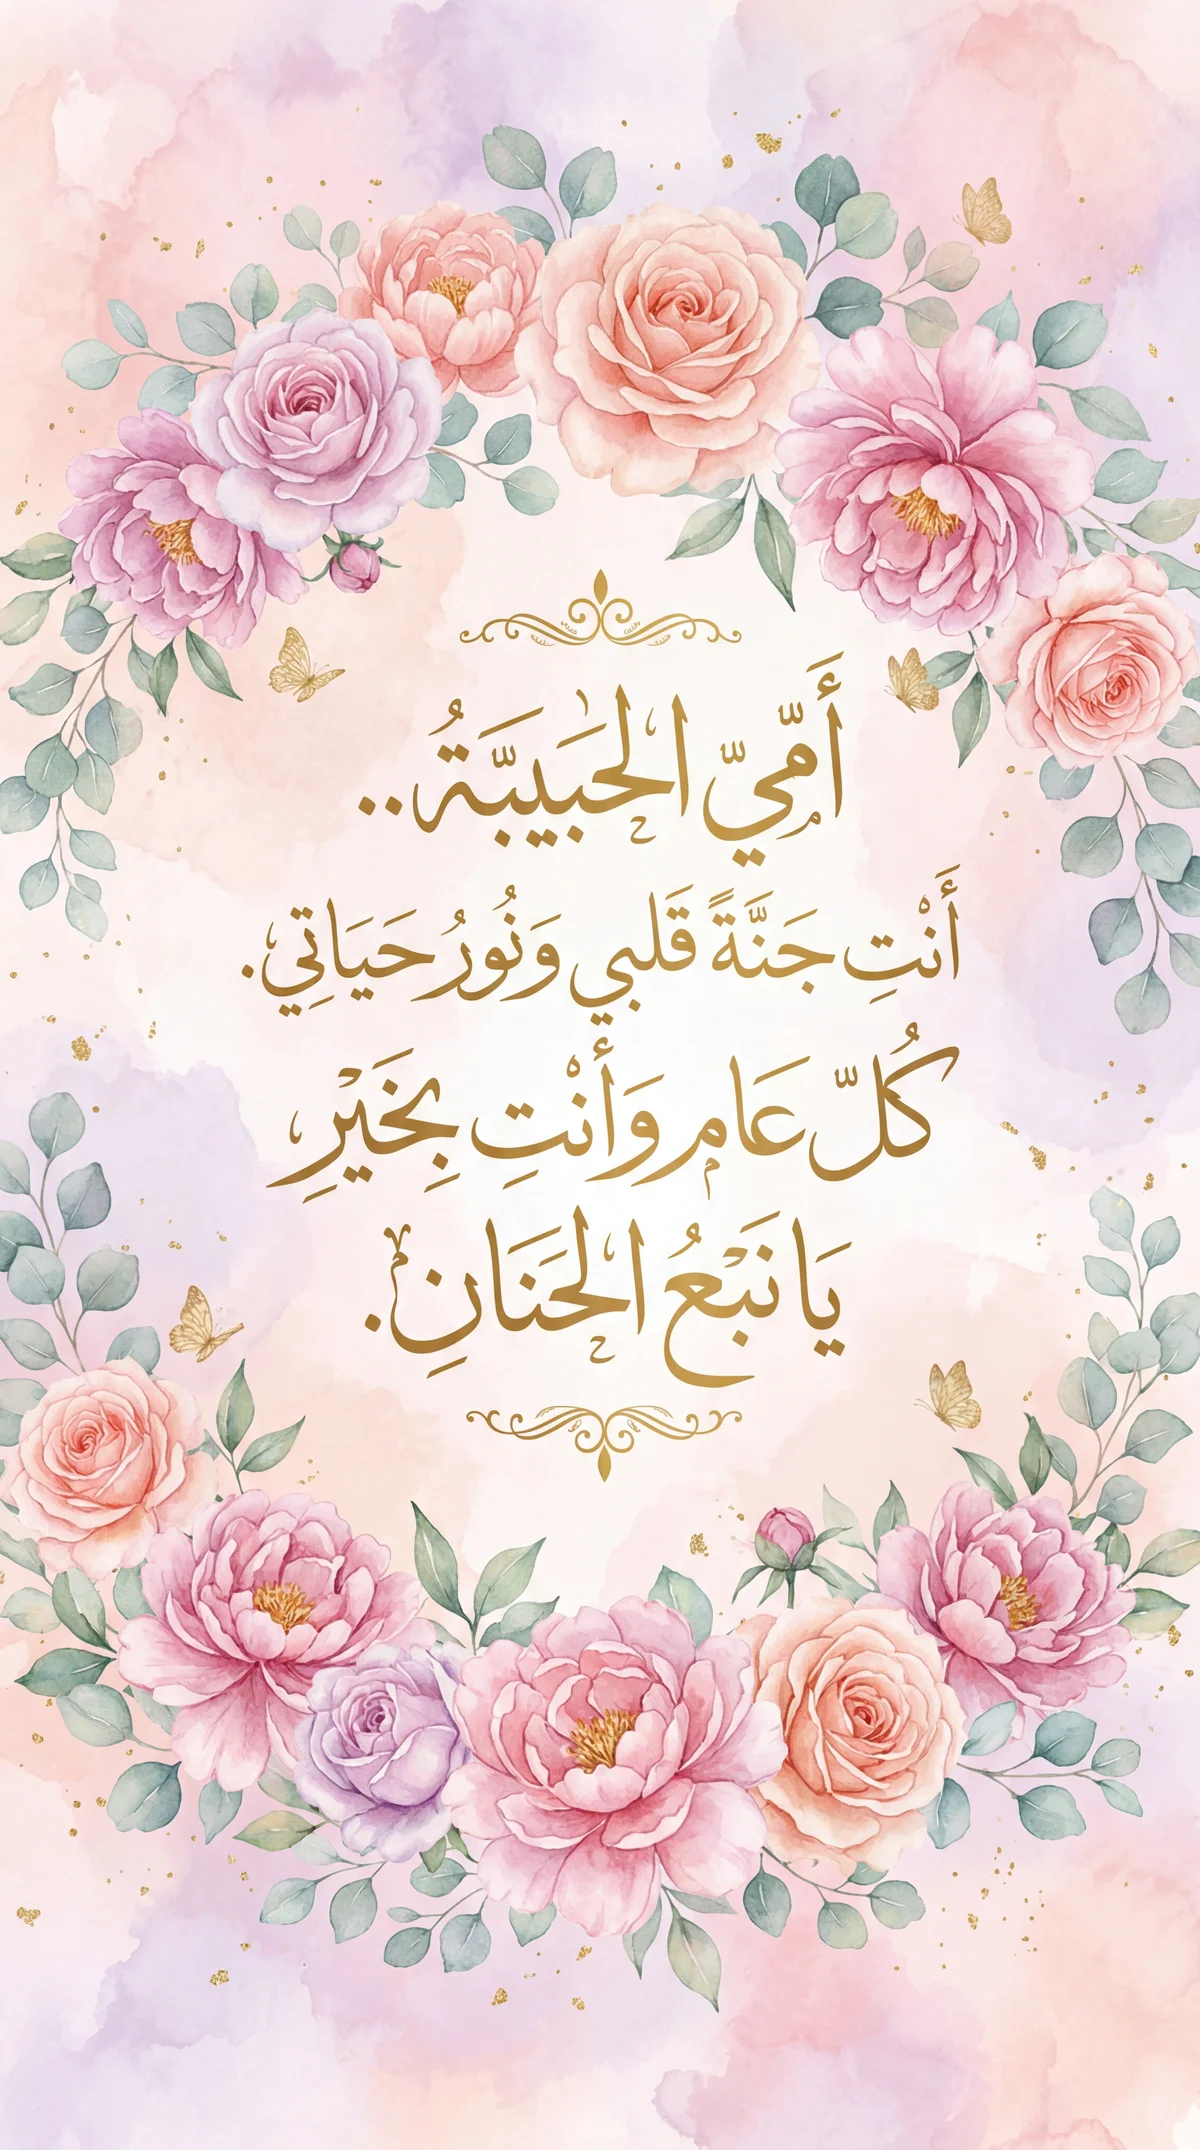 أَمِّيّ الحَبَيبَّةُ..
أَنْتِ جَنَّةً قَلبي وَنُورُ حَيَاتِي.
كُلّ عَام وَأَنْتِ بِخَيْرِ
يَا نَبْعُ الحَنَانِ.